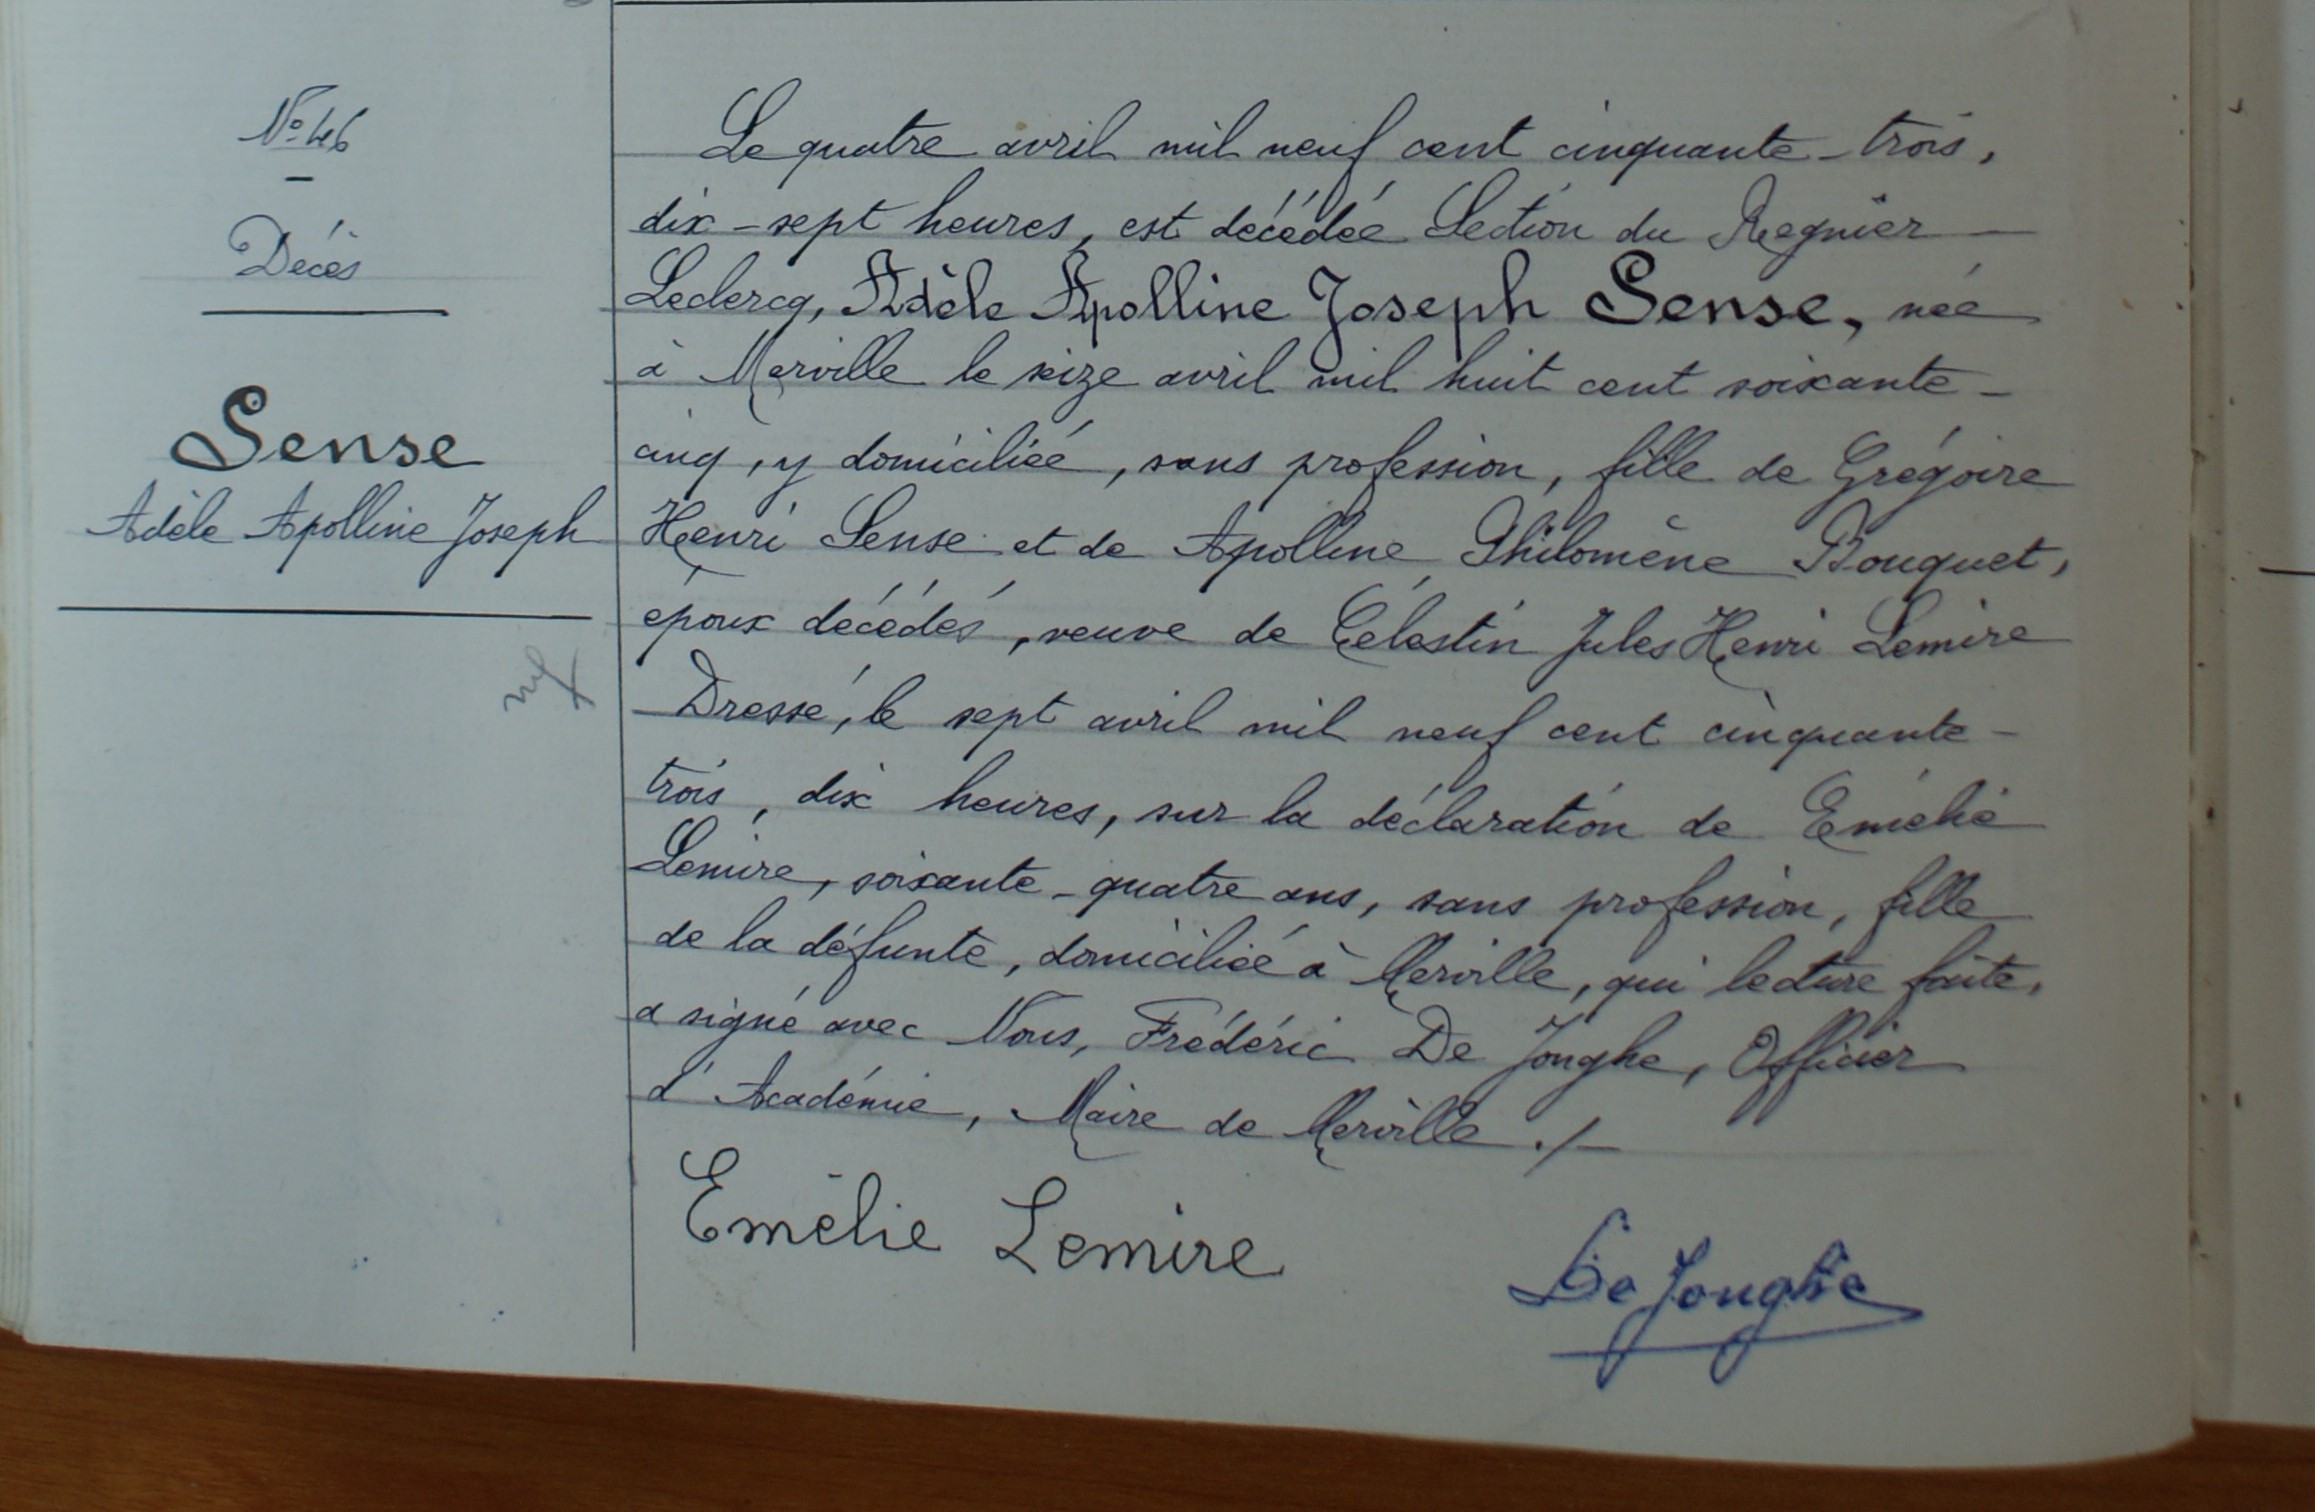 N° 46
Décès
Sense
Adèle Apolline Joseph
Le quatre avril mil neuf cent cinquante-trois,
dix-sept heures, est décédée Section du Regnier-
Leclercq, Adèle Apolline Joseph Sense, née
à Merville le seize avril mil huit cent soixante-
cinq, y domiciliée, sans profession, fille de Grégoire
Henri Sense et de Apolline Philomène Bouquet,
époux décédés, veuve de Célestin Jules Henri Lemire
Dressé, le sept avril mil neuf cent cinquante-
trois, dix heures, sur la déclaration de Emélie
Lemire, soixante-quatre ans, sans profession, fille
de la défunte, domiciliée à Merville, qui lecture faite,
a signé avec Nous, Frédéric De Jonghe, Officier
d'Académie, Maire de Merville ./
Emélie Lemire
De Jonghe